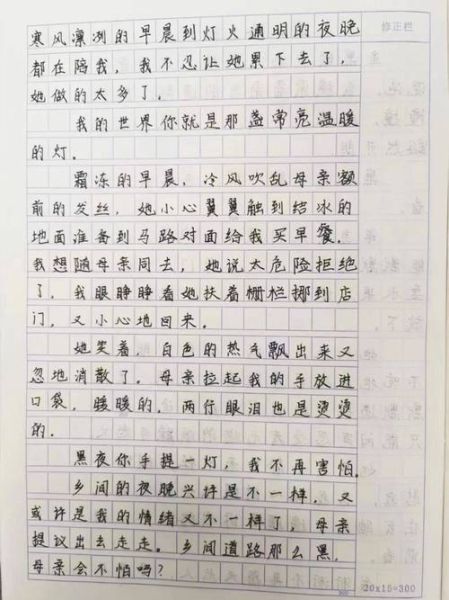 修正栏
寒风凛冽的早晨到灯火通明的夜晚
都在陪我，我不忍让她累下去了，
她做的太多了。
我的世界你就是那盏常亮温暖
的灯．
霜冻的早晨，冷风吹乱母亲额
前的发丝，她小心翼翼触到结冰的
地面准备到马路对面给我买早餐．
我想随母亲同去，她说太危险拒绝
了，我眼睁睁看她扶着栅栏挪到店
门，又小心地回来．
她笑着，白色的热气飘出来又
忽地消散了．母亲拉起我的手放进
口袋，暖暖的．两行眼泪也是烫烫
的．
黑夜你手提一灯，我不再害怕．
乡间的夜晚兴许是不一样，又
或许是我的情绪又不一样了，母亲
提议出去走走。乡间道路那么黑，
母亲会不怕吗？
20x15=300